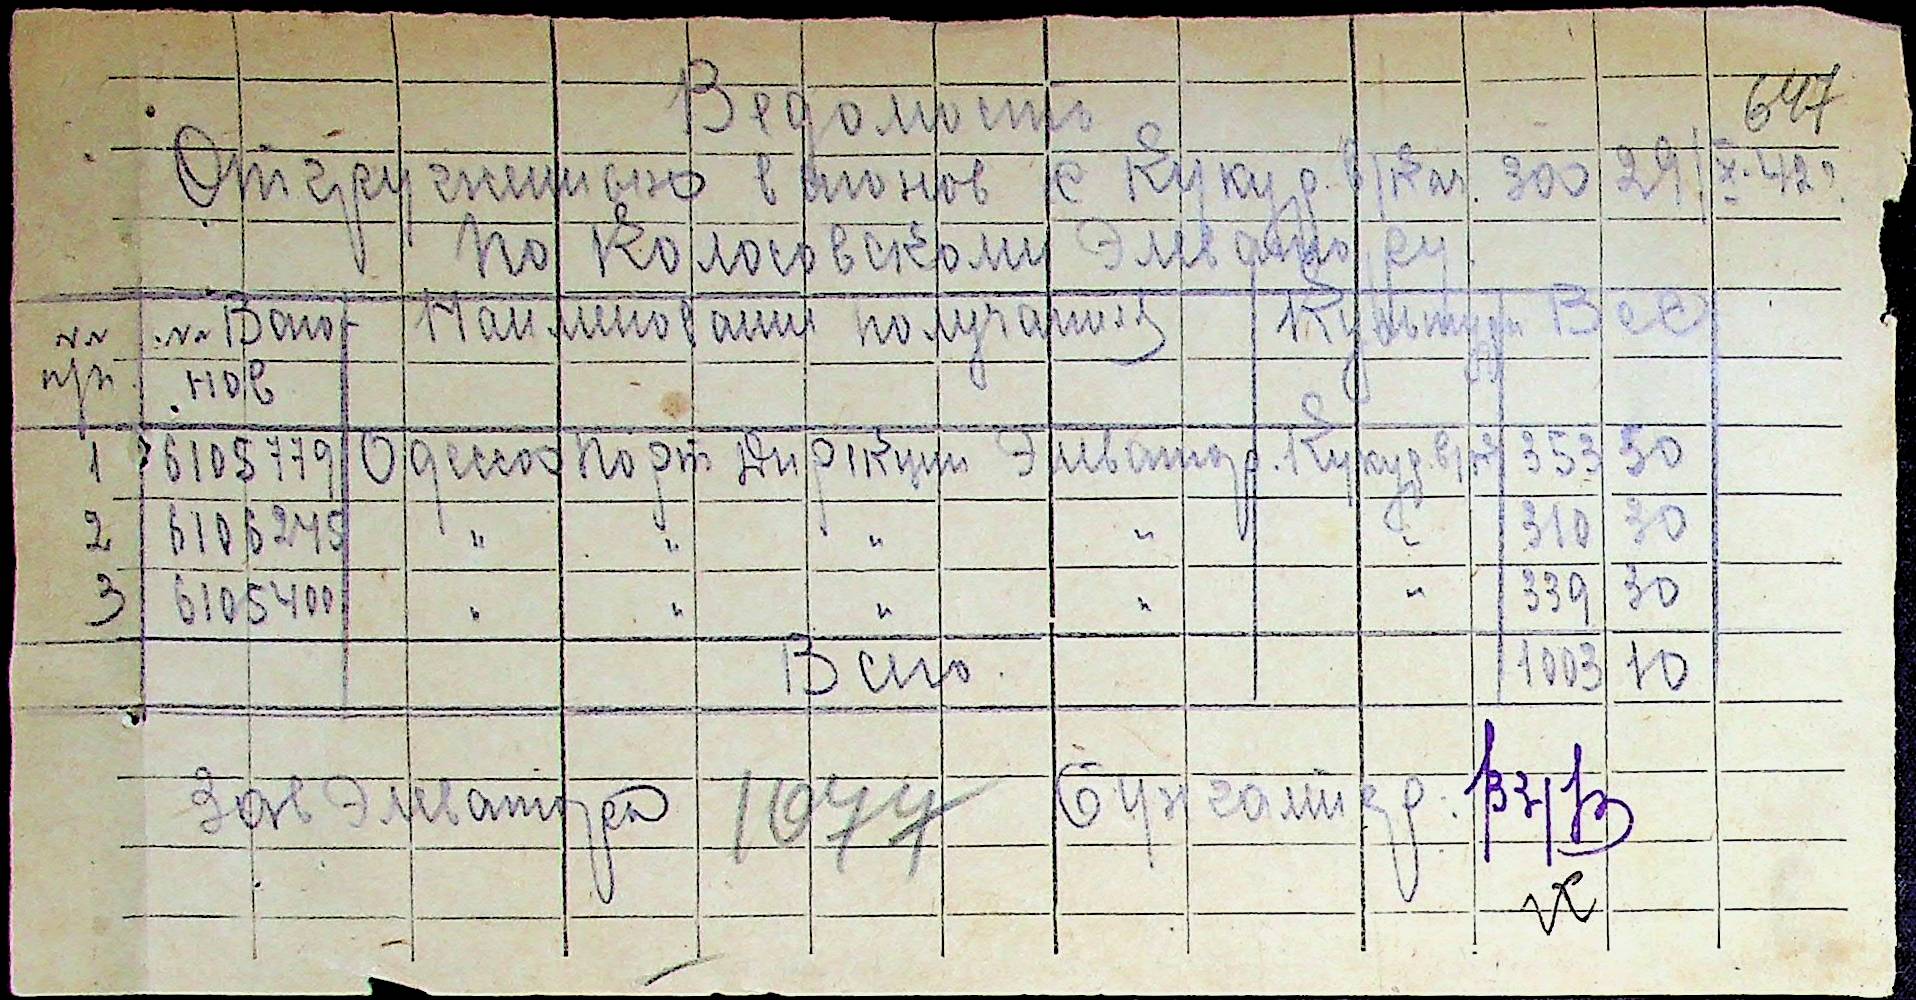 647
Ведомость
Отгруженыхо вагонов с Кукуд. в/кач. за 29/X-42г.
По Колосовскому Элеватору.
№№ п/п №№ Вагонов Наименовании получателя Культура Вес
1 6105779 Одесса порт Дирекции Элеватор. Кукуд. в/к 353 50
2 6106245 " " " " " 310 30
3 6105400 " " " " " 339 30
Всего. 1003 10
Зав Элеватора 1677 Бухгалтер: